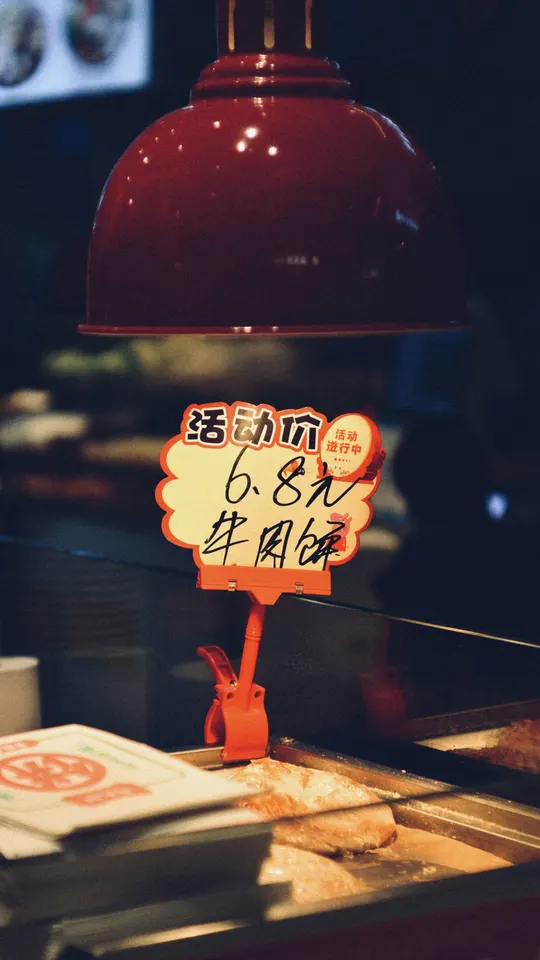 活动价
活动
进行中
6.8元
牛肉饼